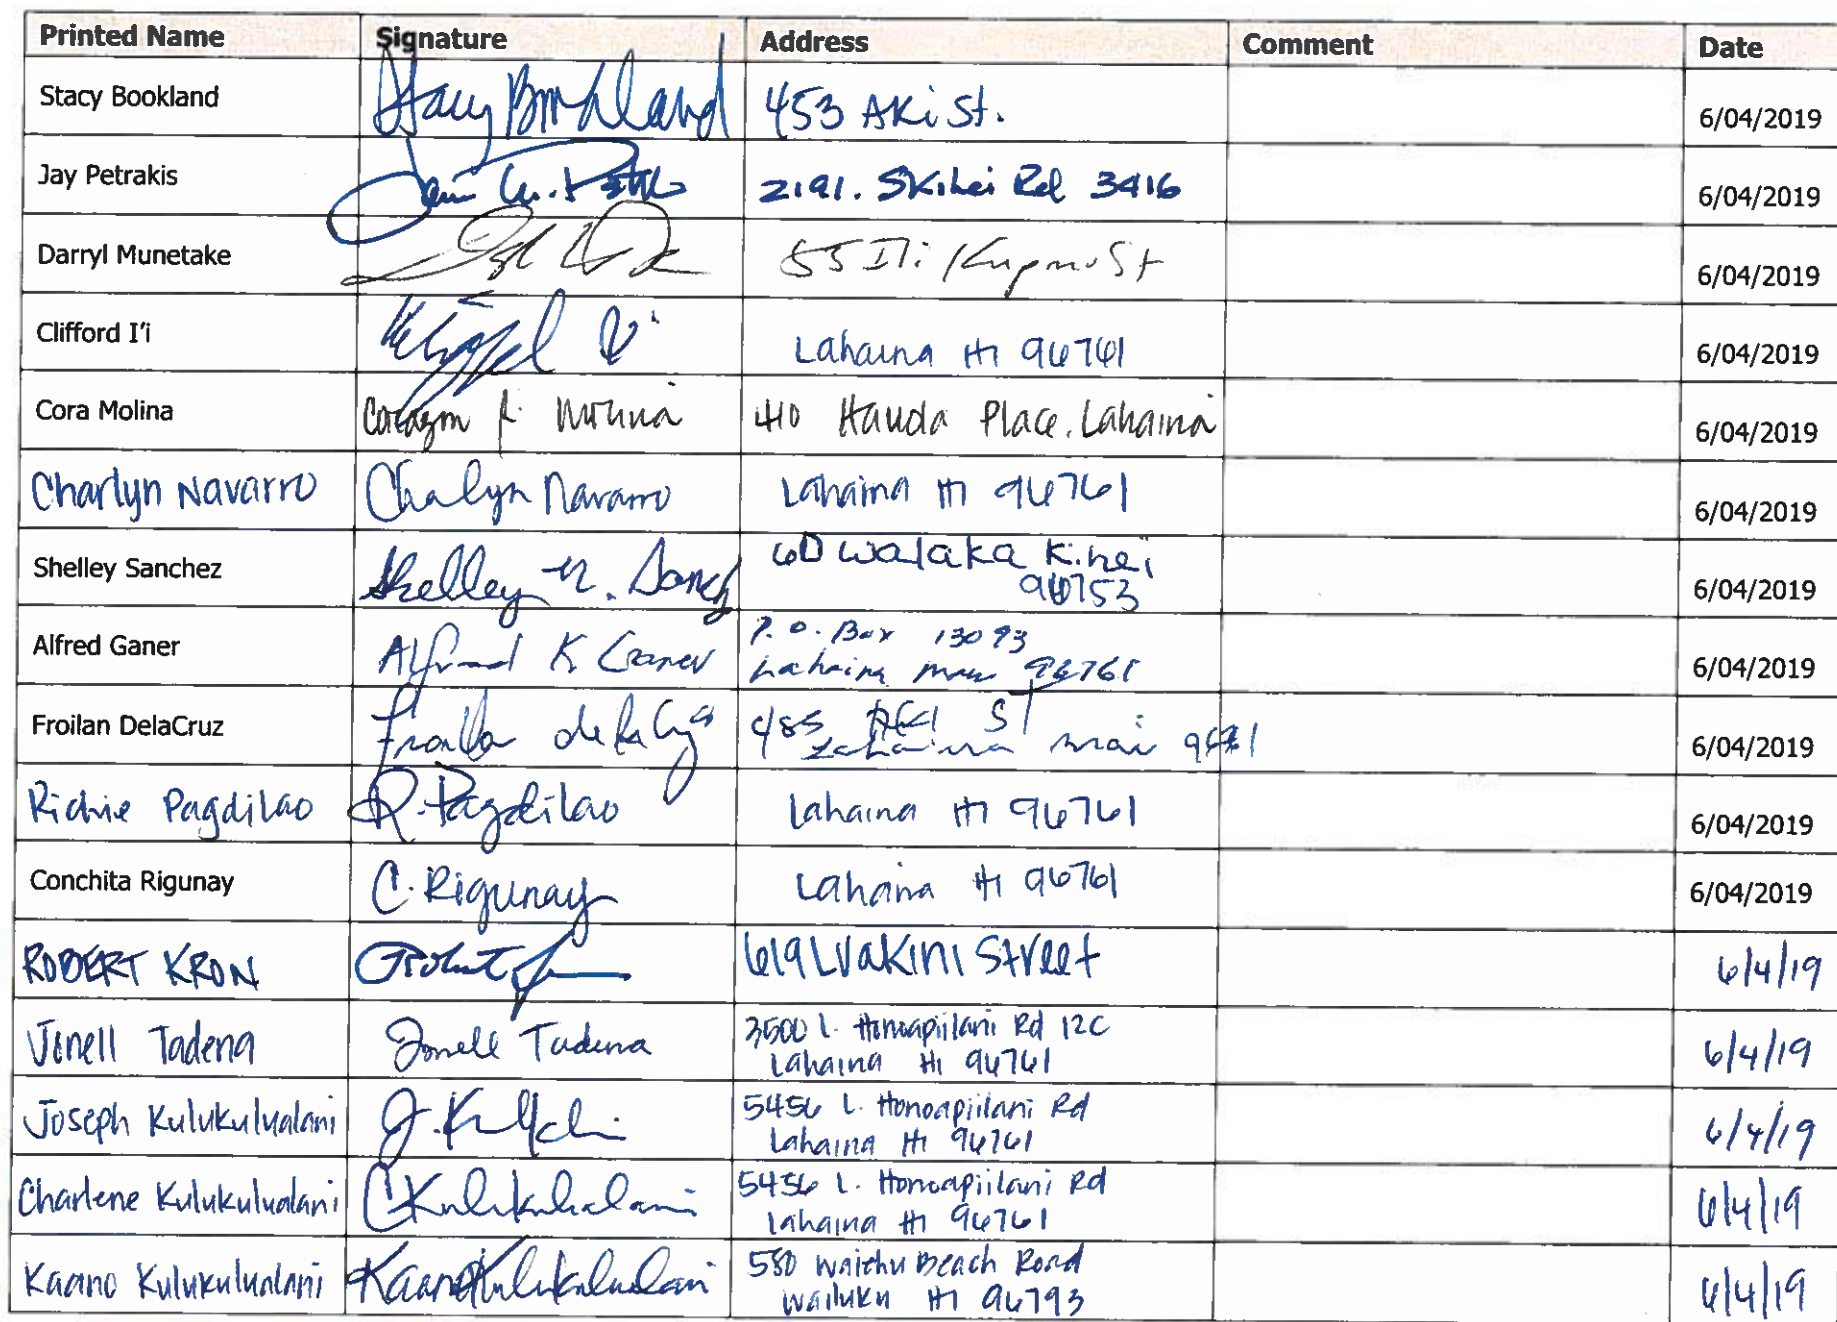 Printed Name Signature Address Comment Date
Stacy Bookland Stacy Bookland 453 Aki St. 6/04/2019
Jay Petrakis 2191. SKihei Rd 3416 6/04/2019
Darryl Munetake 55 Ili St 6/04/2019
Clifford I'i Lahaina HI 96761 6/04/2019
Cora Molina Corazon R. Molina 410 Place, Lahaina 6/04/2019
Charlyn Navarro Charlyn Navarro Lahaina HI 96761 6/04/2019
Shelley Sanchez Shelley M. Sanchez 60 Walaka Kihei
96753 6/04/2019
Alfred Ganer Alfred K Ganer P.O. Box 13093
Lahaina Maui 96761 6/04/2019
Froilan DelaCruz Froilan dela Cruz 485 Aki ST
Lahaina 6/04/2019
Richie Pagdilao R. Pagdilao Lahaina HI 96761 6/04/2019
Conchita Rigunay C. Rigunay Lahaina HI 96761 6/04/2019
ROBERT KRON Robert 619 Luakini Street 6/4/19
Jonell Tadena Jonell Tadena 3500 L. Honoapiilani Rd 12C
Lahaina HI 96761 6/4/19
Joseph Kulukulualani 5456 L. Honoapiilani Rd
Lahaina HI 96761 6/4/19
Charlene Kulukulualani C Kulukulualani 5456 L. Honoapiilani Rd
Lahaina HI 96761 6/4/19
Kaano Kulukulualani Kaano Kulukulualani 580 Waiehu Beach Road
Wailuku HI 96793 6/4/19